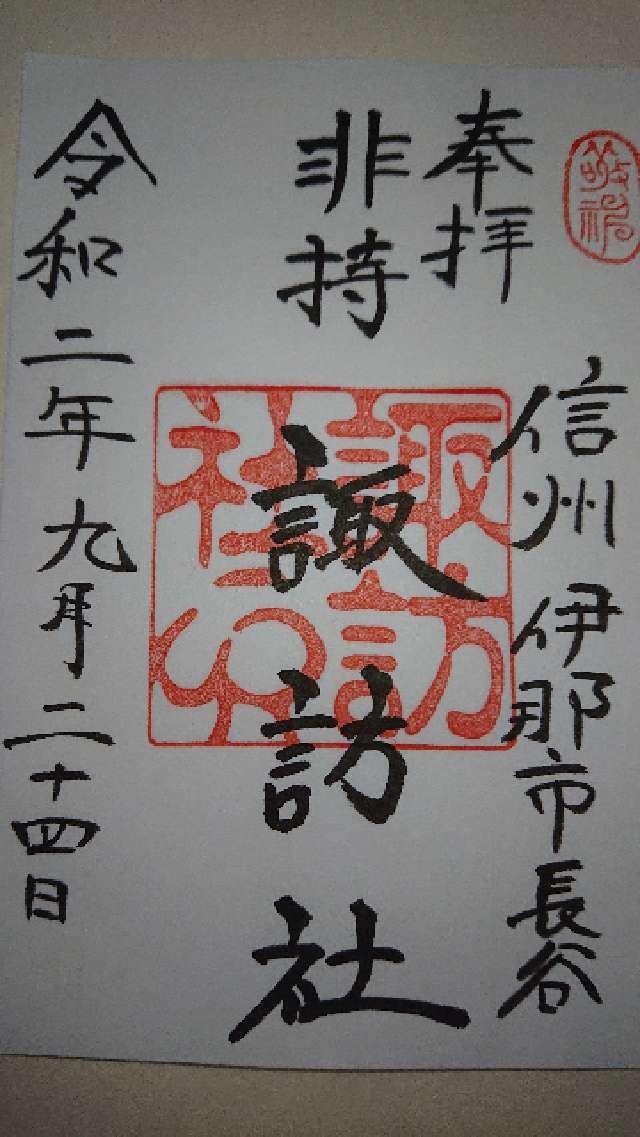 敬神
奉拝
信州 伊那市長谷
非持
諏訪社
諏訪
社印
令和二年九月二十四日